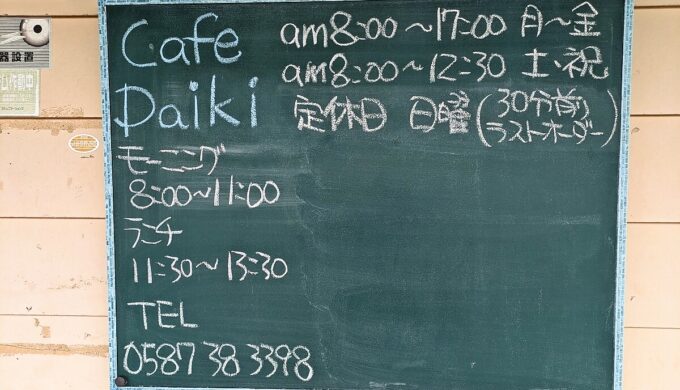 Cafe Daiki
am8:00～17:00 月～金
am8:00～12:30 土・祝
定休日 日曜 (30分前ラストオーダー)
モーニング
8:00～11:00
ランチ
11:30～13:30
TEL
0587 38 3398
器設置
作動中